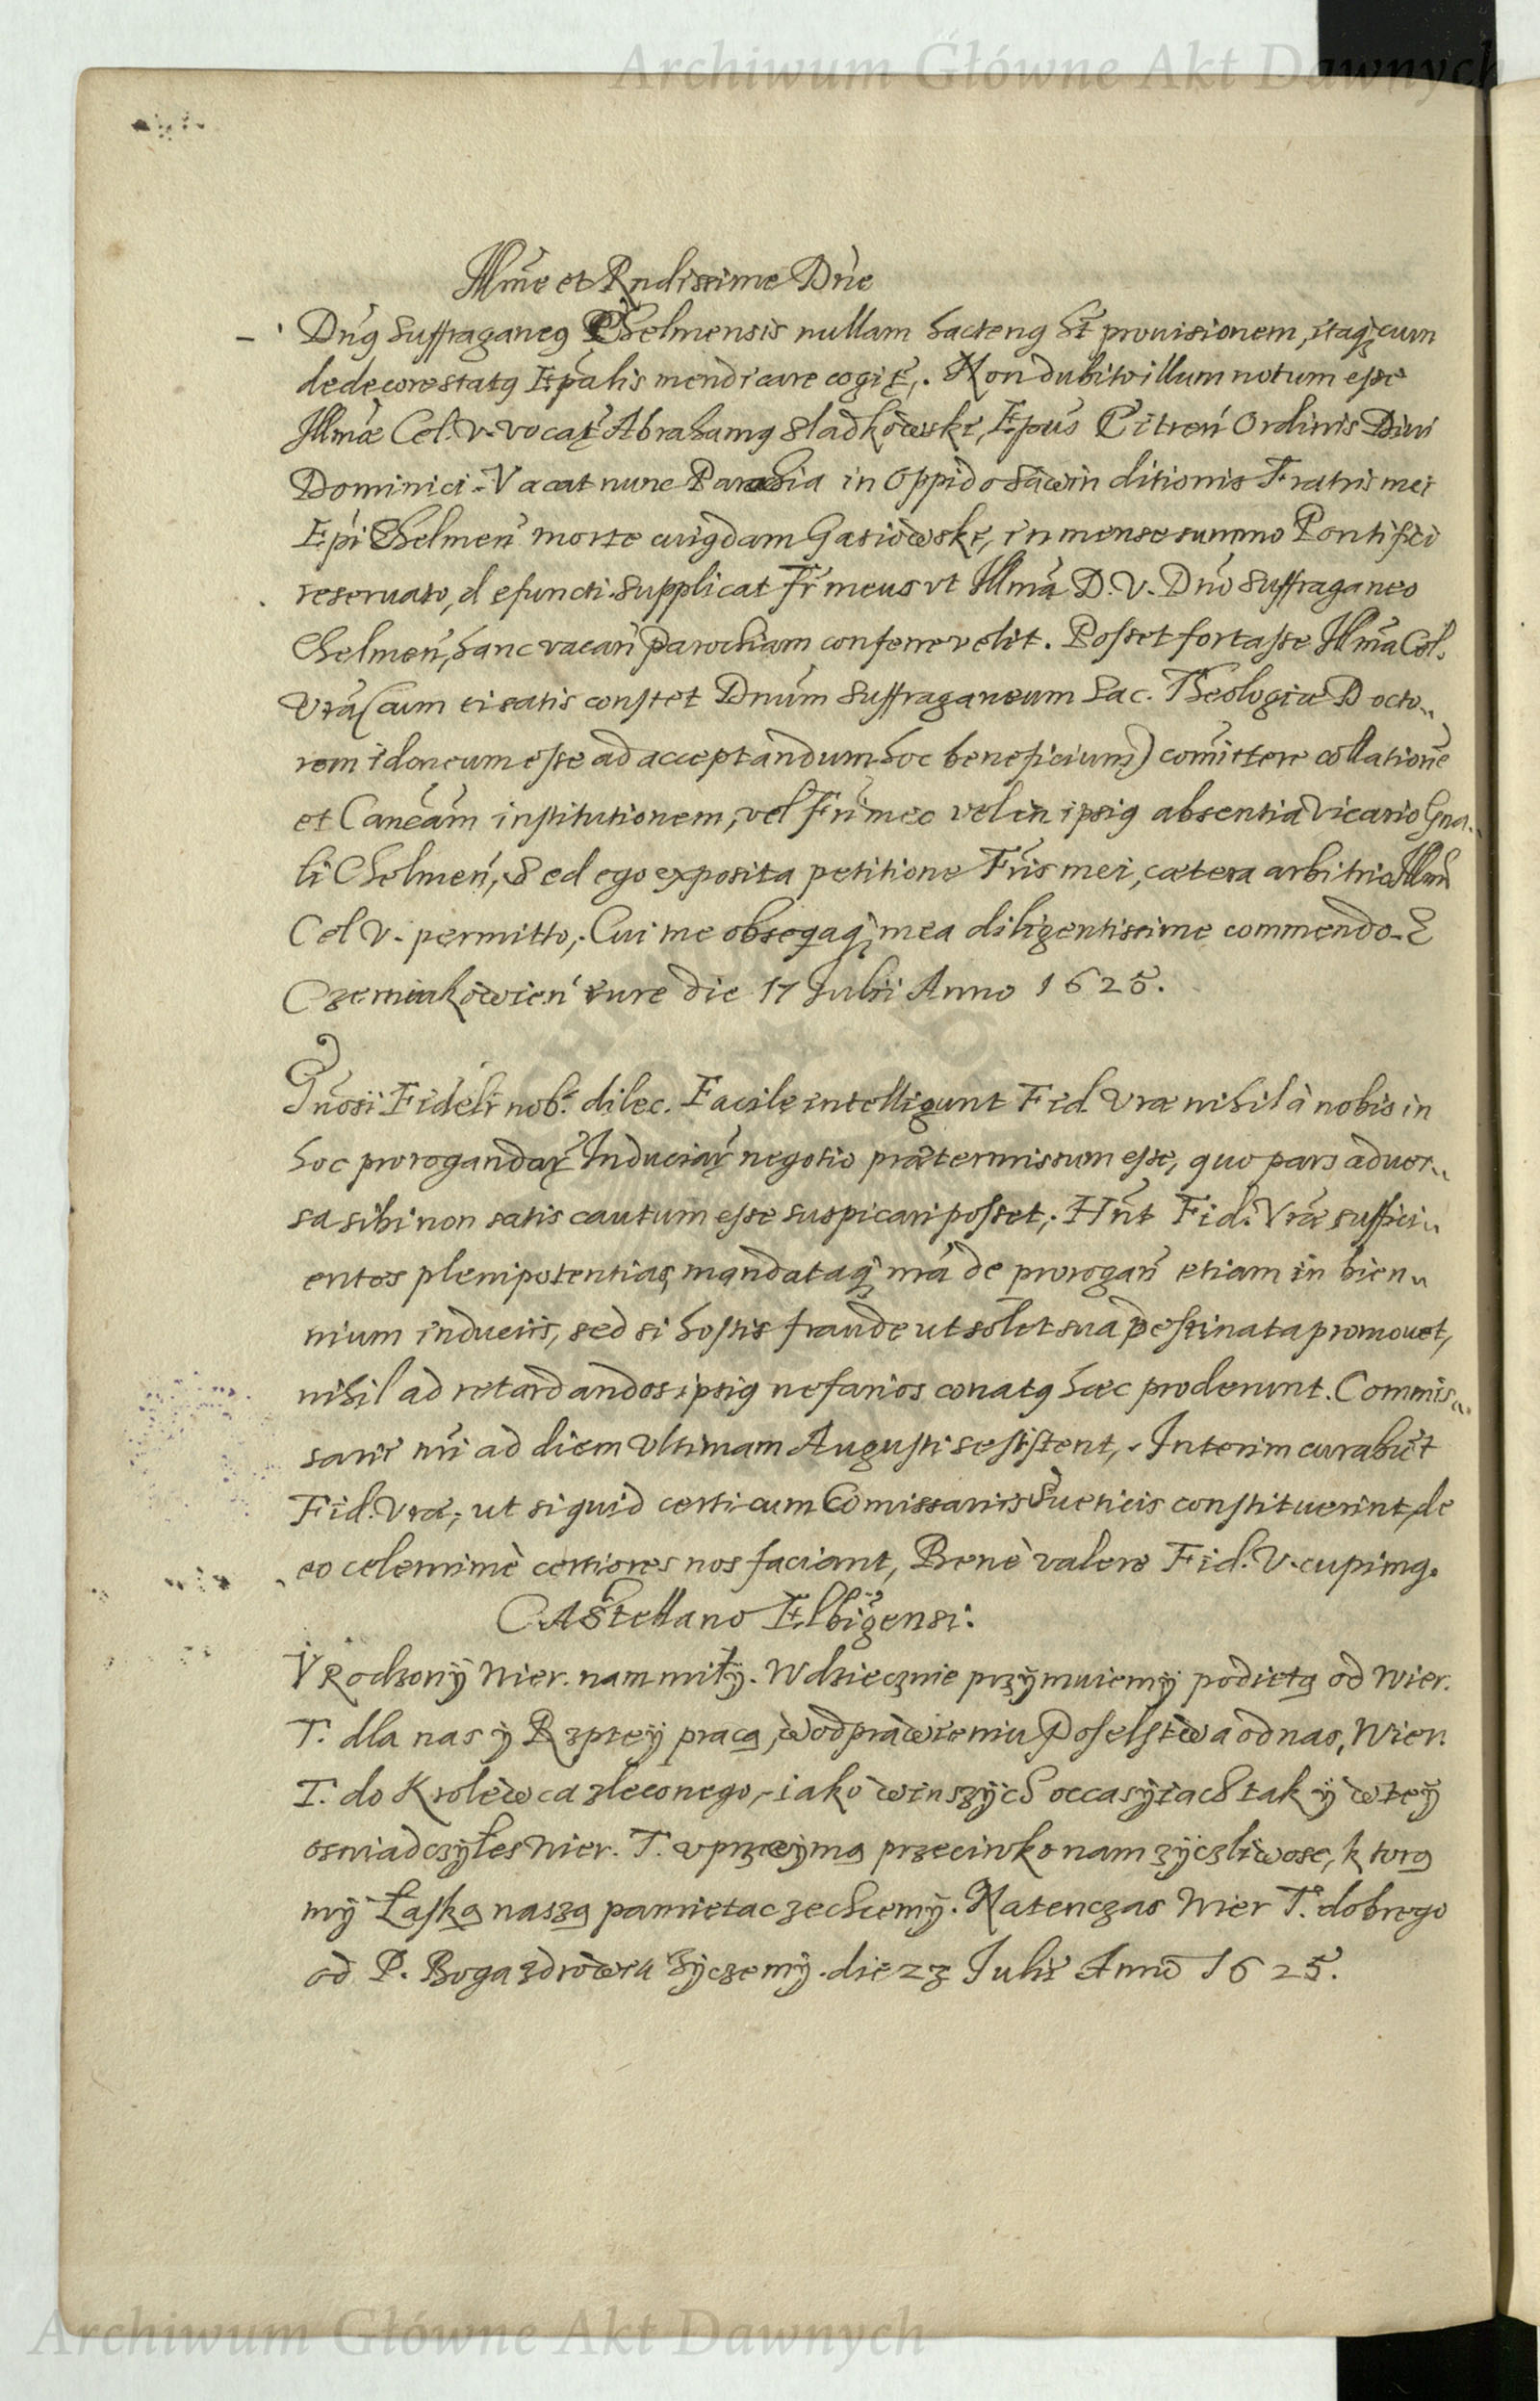 Archiwum Główne Akt Dawnych
Illme et Rndissime Dne
Dnꝰ Suffraganeꝰ Chelmensis nullam hactenꝰ ht prouisionem, itaq cum
dedecore statꝰ Epalis mendicare cogit. Non dubito illum notum esse
Illmæ Cel. V. vocat Abrahamꝰ Sladkowski, Epus Citren Ordinis Diui
Dominici. Vacat nunc Parochia in Oppido Sawin ditionis Fratris mei
Epi Chelmen morte cuiꝰdam Gasiowski, in mense summo Pontifici
reseruato, defuncti. Supplicat fr meus vt Illma D. V. Dno Suffraganeo
Chelmen, hanc vacan parochiam conferre velit. Posset fortasse Illma Cel.
Vra (cum ei satis constet Dnum Suffraganeum Sac. Theologiæ Docto„
rem idoneum esse ad acceptandum hoc beneficium) comittere collatione
et Caneam institutionem, vel Fri meo vel in ipsiꝰ absentia Vicario Gna„
li Chelmen, Sed ego exposita petitione Fris mei, cætera arbitrio Illm
Cel V. permitto, Cui me obseqaq mea diligentissime commendo.
Czerniakowien rure die 17 Julii Anno 1625.
Gnosi Fideli nob. dilec. Facile intelligunt Fid. Vræ nihil à nobis in
hoc prorogandar Induciar negotio prætermissum esse, quo pars aduer„
sa sibi non satis cautum esse suspicari posset, Hnt Fid. Vræ suffici„
entes plenipotentias, mandataq nra de prorogan etiam in bien„
nium induciis, sed si hostis fraude ut solet sua destinata promouet,
nihil ad retardandos ipsiꝰ nefarios conatꝰ hæc proderunt. Commis„
sarii nri ad diem Vltimam Augusti se sistent, Interim curabut
Fid. Vræ, ut si quid certi cum Comissariis Sueticis constituerint, de
eo celerrimè certiores nos faciant, Benè valere Fid. V. cupimꝰ.
Castellano Elbigensi.
VRodzony Wier. nam miły. Wdziecznie przymuiemy podietą od Wier.
T. dla nas y Rzptey pracą, w odprawieniu Poselstwa od nas, Wier.
T. do Krolewca zleconego, iako w inszych occasyiach tak y w tey
oswiadczyłes Wier. T. vprzeymą przeciwko nam zyczliwosc, ktorą
my Łaską naszą pamietac zechcemy. Natenczas Wier T. dobrego
od P. Boga zdrowia życzemy. die 23 Julii Anno 1625.
Archiwum Główne Akt Dawnych